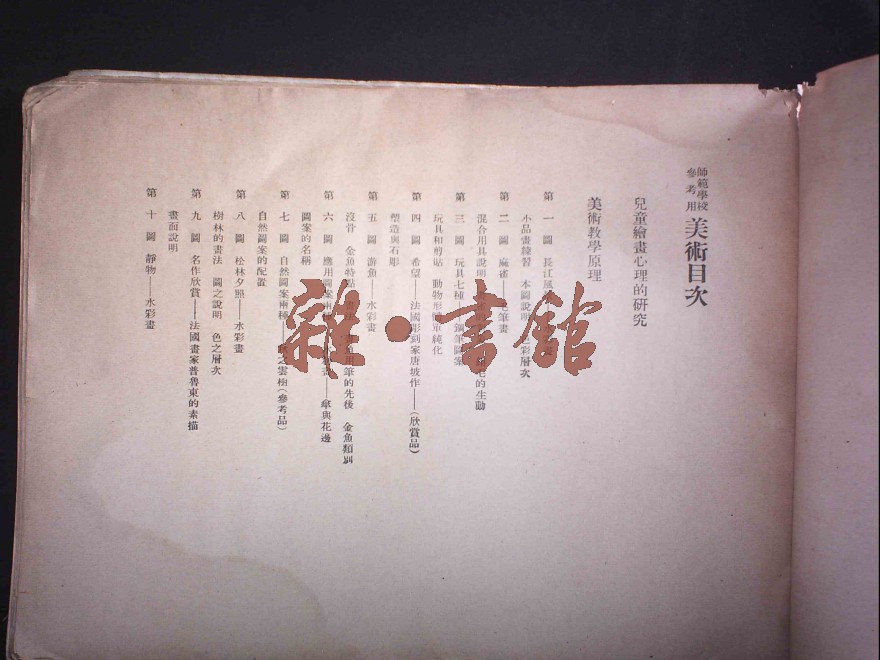 師範學校
參考用
美術目次
兒童繪畫心理的研究
美術教學原理
第一圖 長江風
小品畫練習 本圖說明 色彩層次
第二圖 麻雀——毛筆畫
混合用具說明 的生動
第三圖 玩具七種 鋼筆圖案
玩具和剪貼 動物形體單純化
第四圖 希望——法國彫刻家唐坡作——(欣賞品)
塑造與石彫
第五圖 游魚——水彩畫
沒骨 金魚特點 用筆的先後 金魚類別
第六圖 應用圖案兩種 ——傘與花邊
圖案的名稱
第七圖 自然圖案兩種 之雲樹(參考品)
自然圖案的配置
第八圖 松林夕照——水彩畫
樹林的畫法 圖之說明 色之層次
第九圖 名作欣賞——法國畫家普魯東的素描
畫面說明
第十圖 靜物——水彩畫
雜·書館